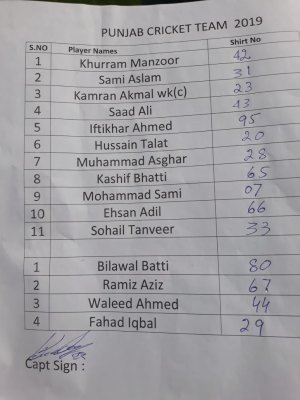 PUNJAB CRICKET TEAM 2019
S.NO Player Names Shirt No
1 Khurram Manzoor 42
2 Sami Aslam 31
3 Kamran Akmal wk(c) 23
4 Saad Ali 13
5 Iftikhar Ahmed 95
6 Hussain Talat 20
7 Muhammad Asghar 28
8 Kashif Bhatti 65
9 Mohammad Sami 07
10 Ehsan Adil 66
11 Sohail Tanveer 33
1 Bilawal Batti 80
2 Ramiz Aziz 67
3 Waleed Ahmed 44
4 Fahad Iqbal 29
Capt Sign :